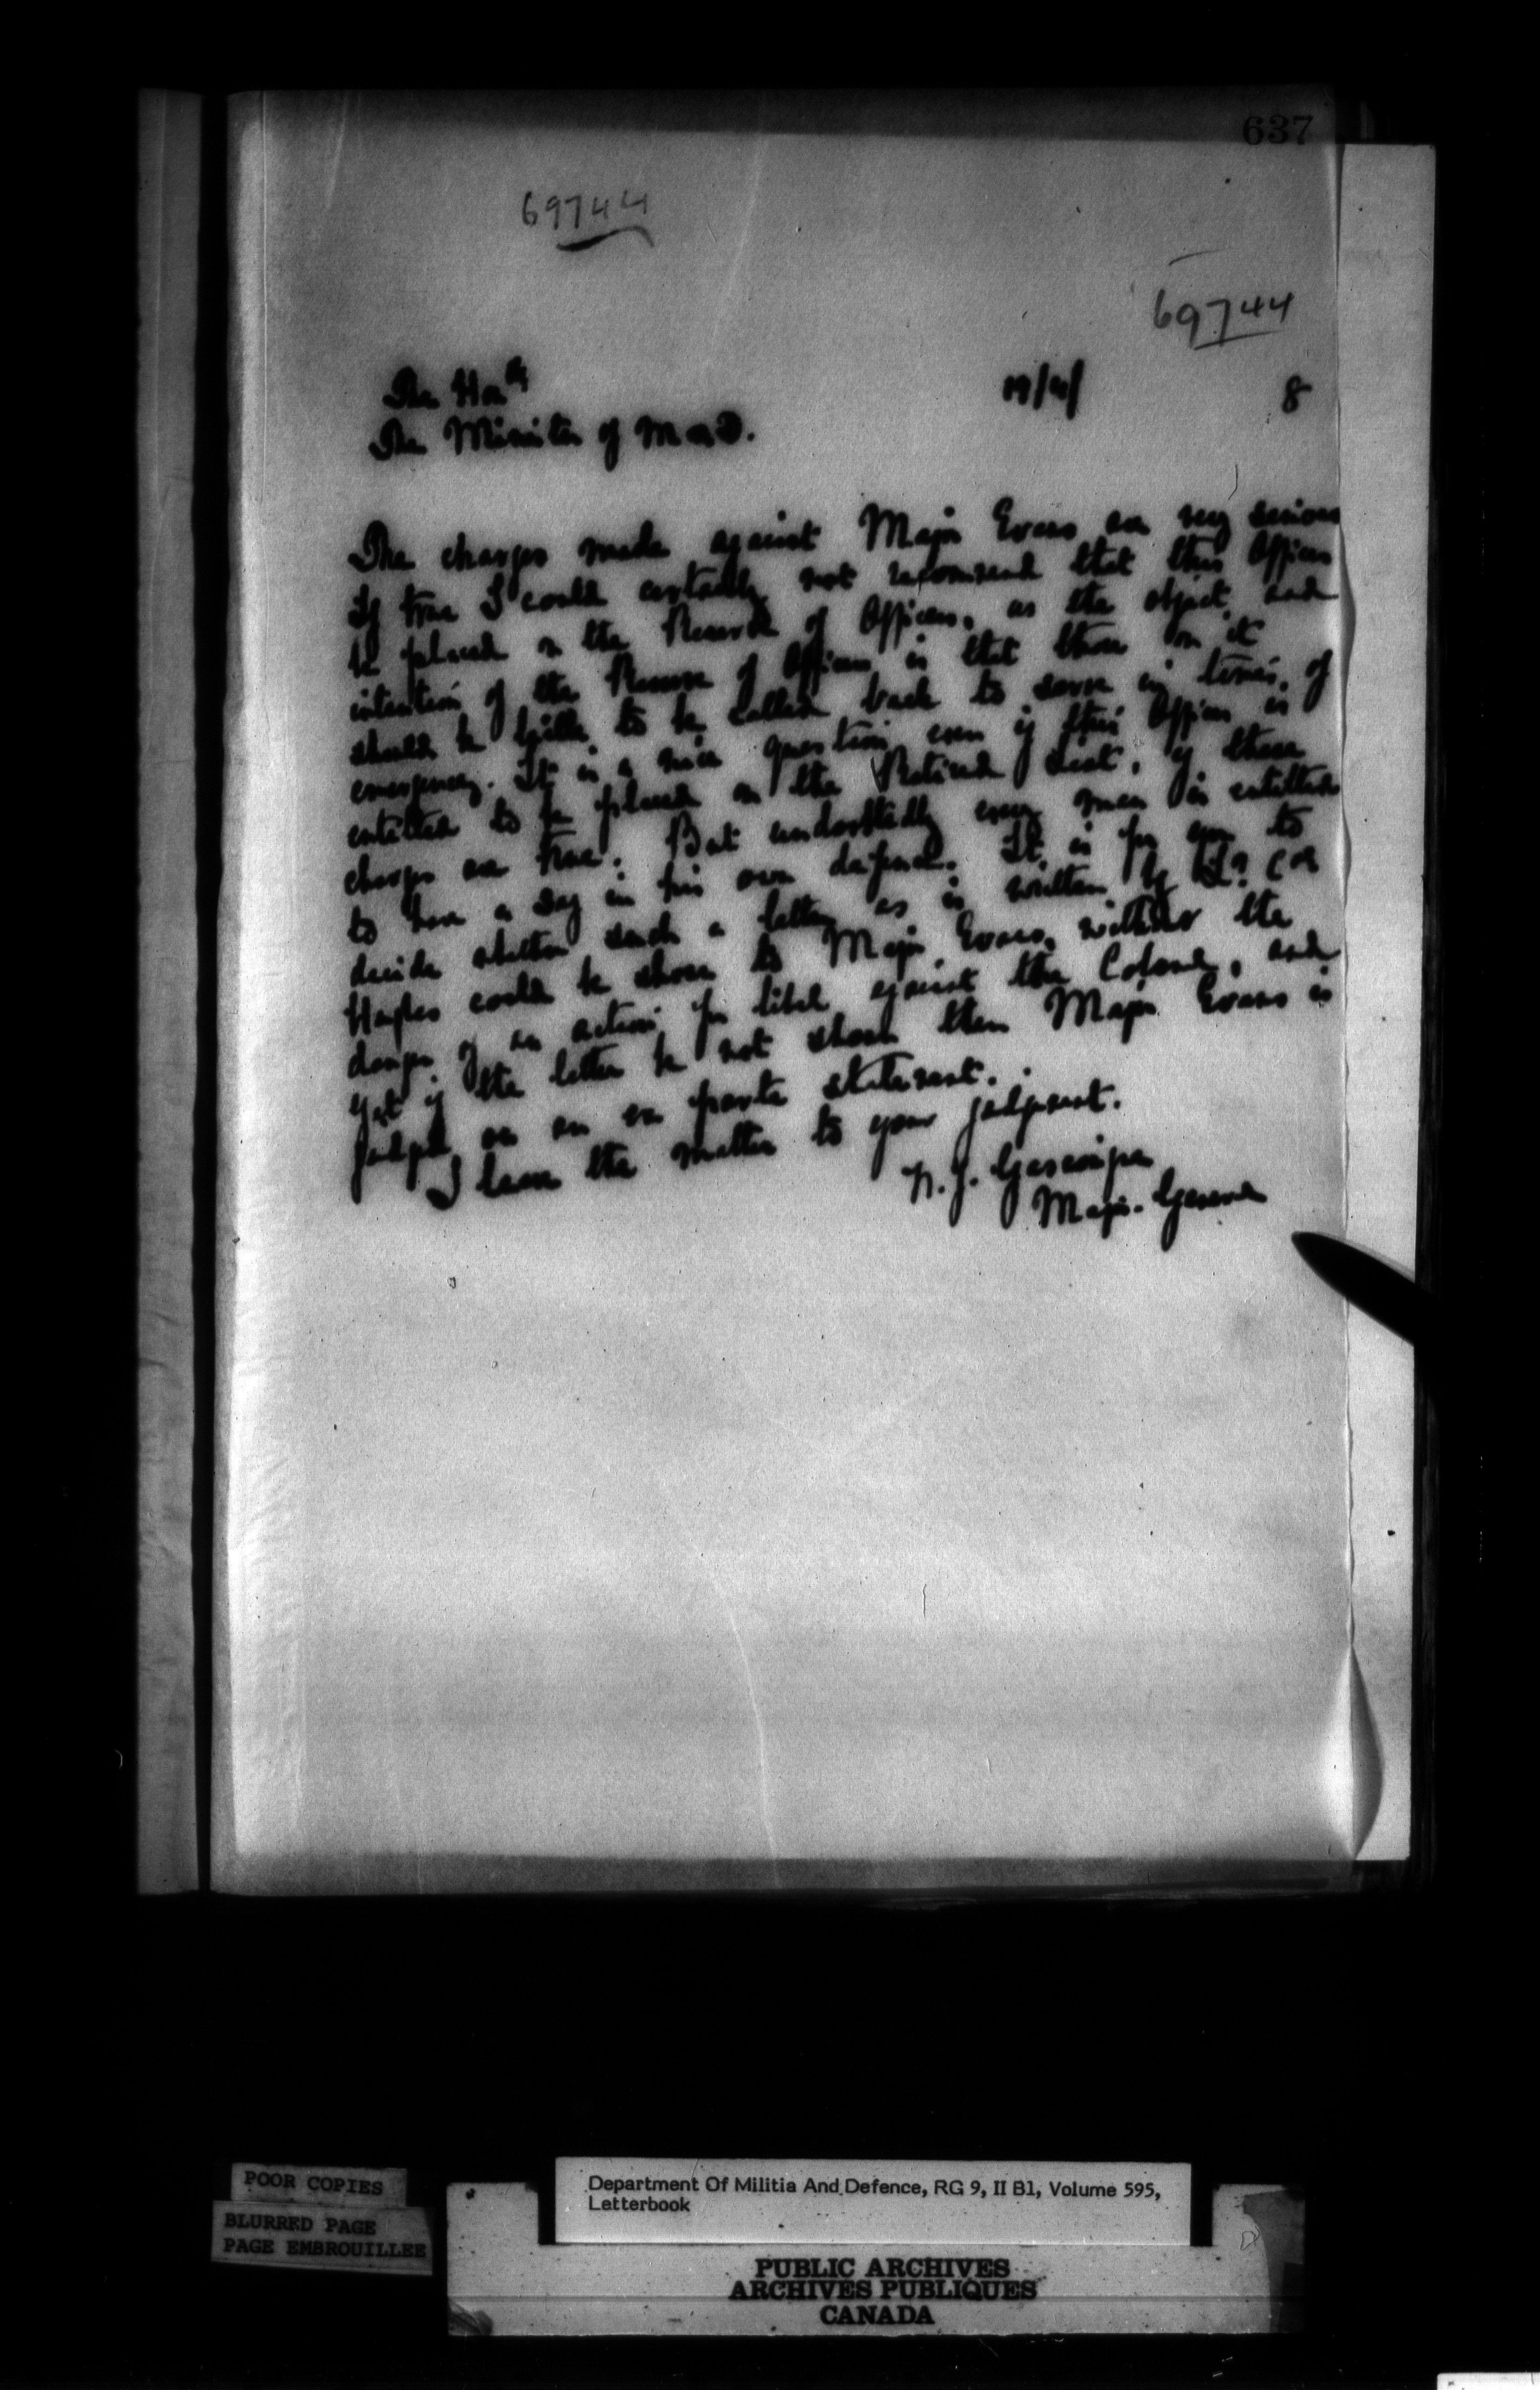 637
69744
69744
The Honble 19/4/ 8
The Minister of M and D.
The charges made against Major Evans are very serious
If true I could certainly not recommend that this Officer
be placed on the Reserve of Officers, as the object and
intention of the Reserve of Officers is that those on it
should be liable to be called back to serve in times of
emergency. It is a nice question even if this Officer is
entitled to be placed on the Retired List, if these
charges are true. But undoubtedly every man is entitled
to have a say in his own defence. It is for you to
decide whether such a letter as is written by Lt. Col
Hughes could be shown to Major Evans, without the
danger of an action for libel against the Colonel, and
yet if the letter be not shown then Major Evans is
judged on an ex parte statement.
I leave the matter to your judgment.
Gascoigne
Major-General
POOR COPIES
BLURRED PAGE
PAGE EMBROUILLEE
Department Of Militia And Defence, RG 9, II B1, Volume 595,
Letterbook
PUBLIC ARCHIVES
ARCHIVES PUBLIQUES
CANADA